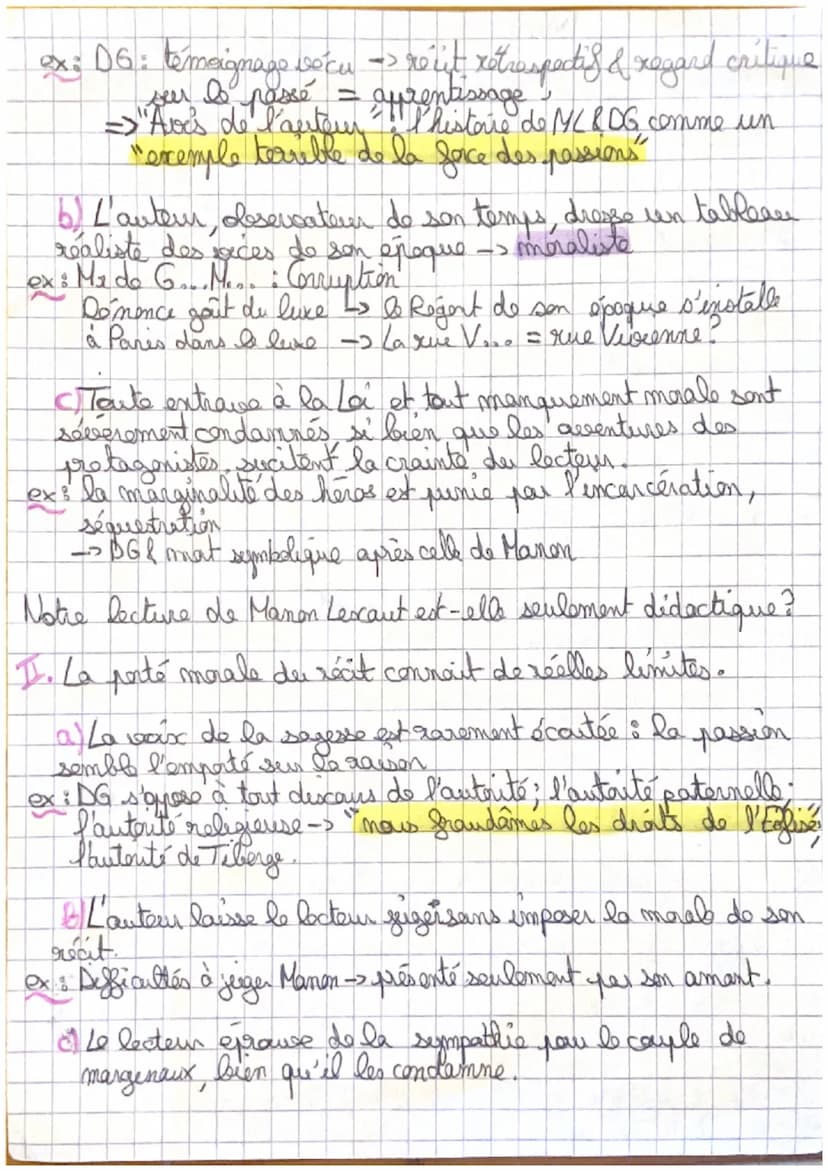 ex: DG: témoignage vécu -> récit rétrospectif & regard critique
sur le passé = apprentissage
=> "Avis de l'auteur": l'histoire de ML & DG comme un
"exemple terrible de la force des passions"
b) L'auteur, observateur de son temps, dresse un tableau
réaliste des vices de son époque -> moraliste
ex: Mr de G...M... : Corruption
Dénonce goût du luxe ↳ le Régent de son époque s'installe
à Paris dans le luxe -> La rue V... = rue Vivienne?
c) Toute entrave à la Loi et tout manquement morale sont
sévèrement condamnés, si bien que les aventures des
protagonistes, sucitent la crainte du lecteur.
ex: la marginalité des héros est punie par l'incarcération,
séquestration
-> DG & mort symbolique après celle de Manon
Notre lecture de Manon Lescaut est-elle seulement didactique?
II. La porté morale du récit connait de réelles limites.
a) La voix de la sagesse est rarement écoutée : la passion
semble l'emporté sur la raison
ex: DG s'oppose à tout discours de l'autorité; l'autorité paternelle;
l'autorité religieuse -> "nous fraudâmes les droits de l'Eglise",
l'autorité de Tiberge.
b) L'auteur laisse le lecteur juger sans imposer la morale de son
récit.
ex: Difficultés à juger Manon -> présenté seulement par son amant.
c) Le lecteur éprouve de la sympathie pour le couple de
margenaux, bien qu'il les condamne.